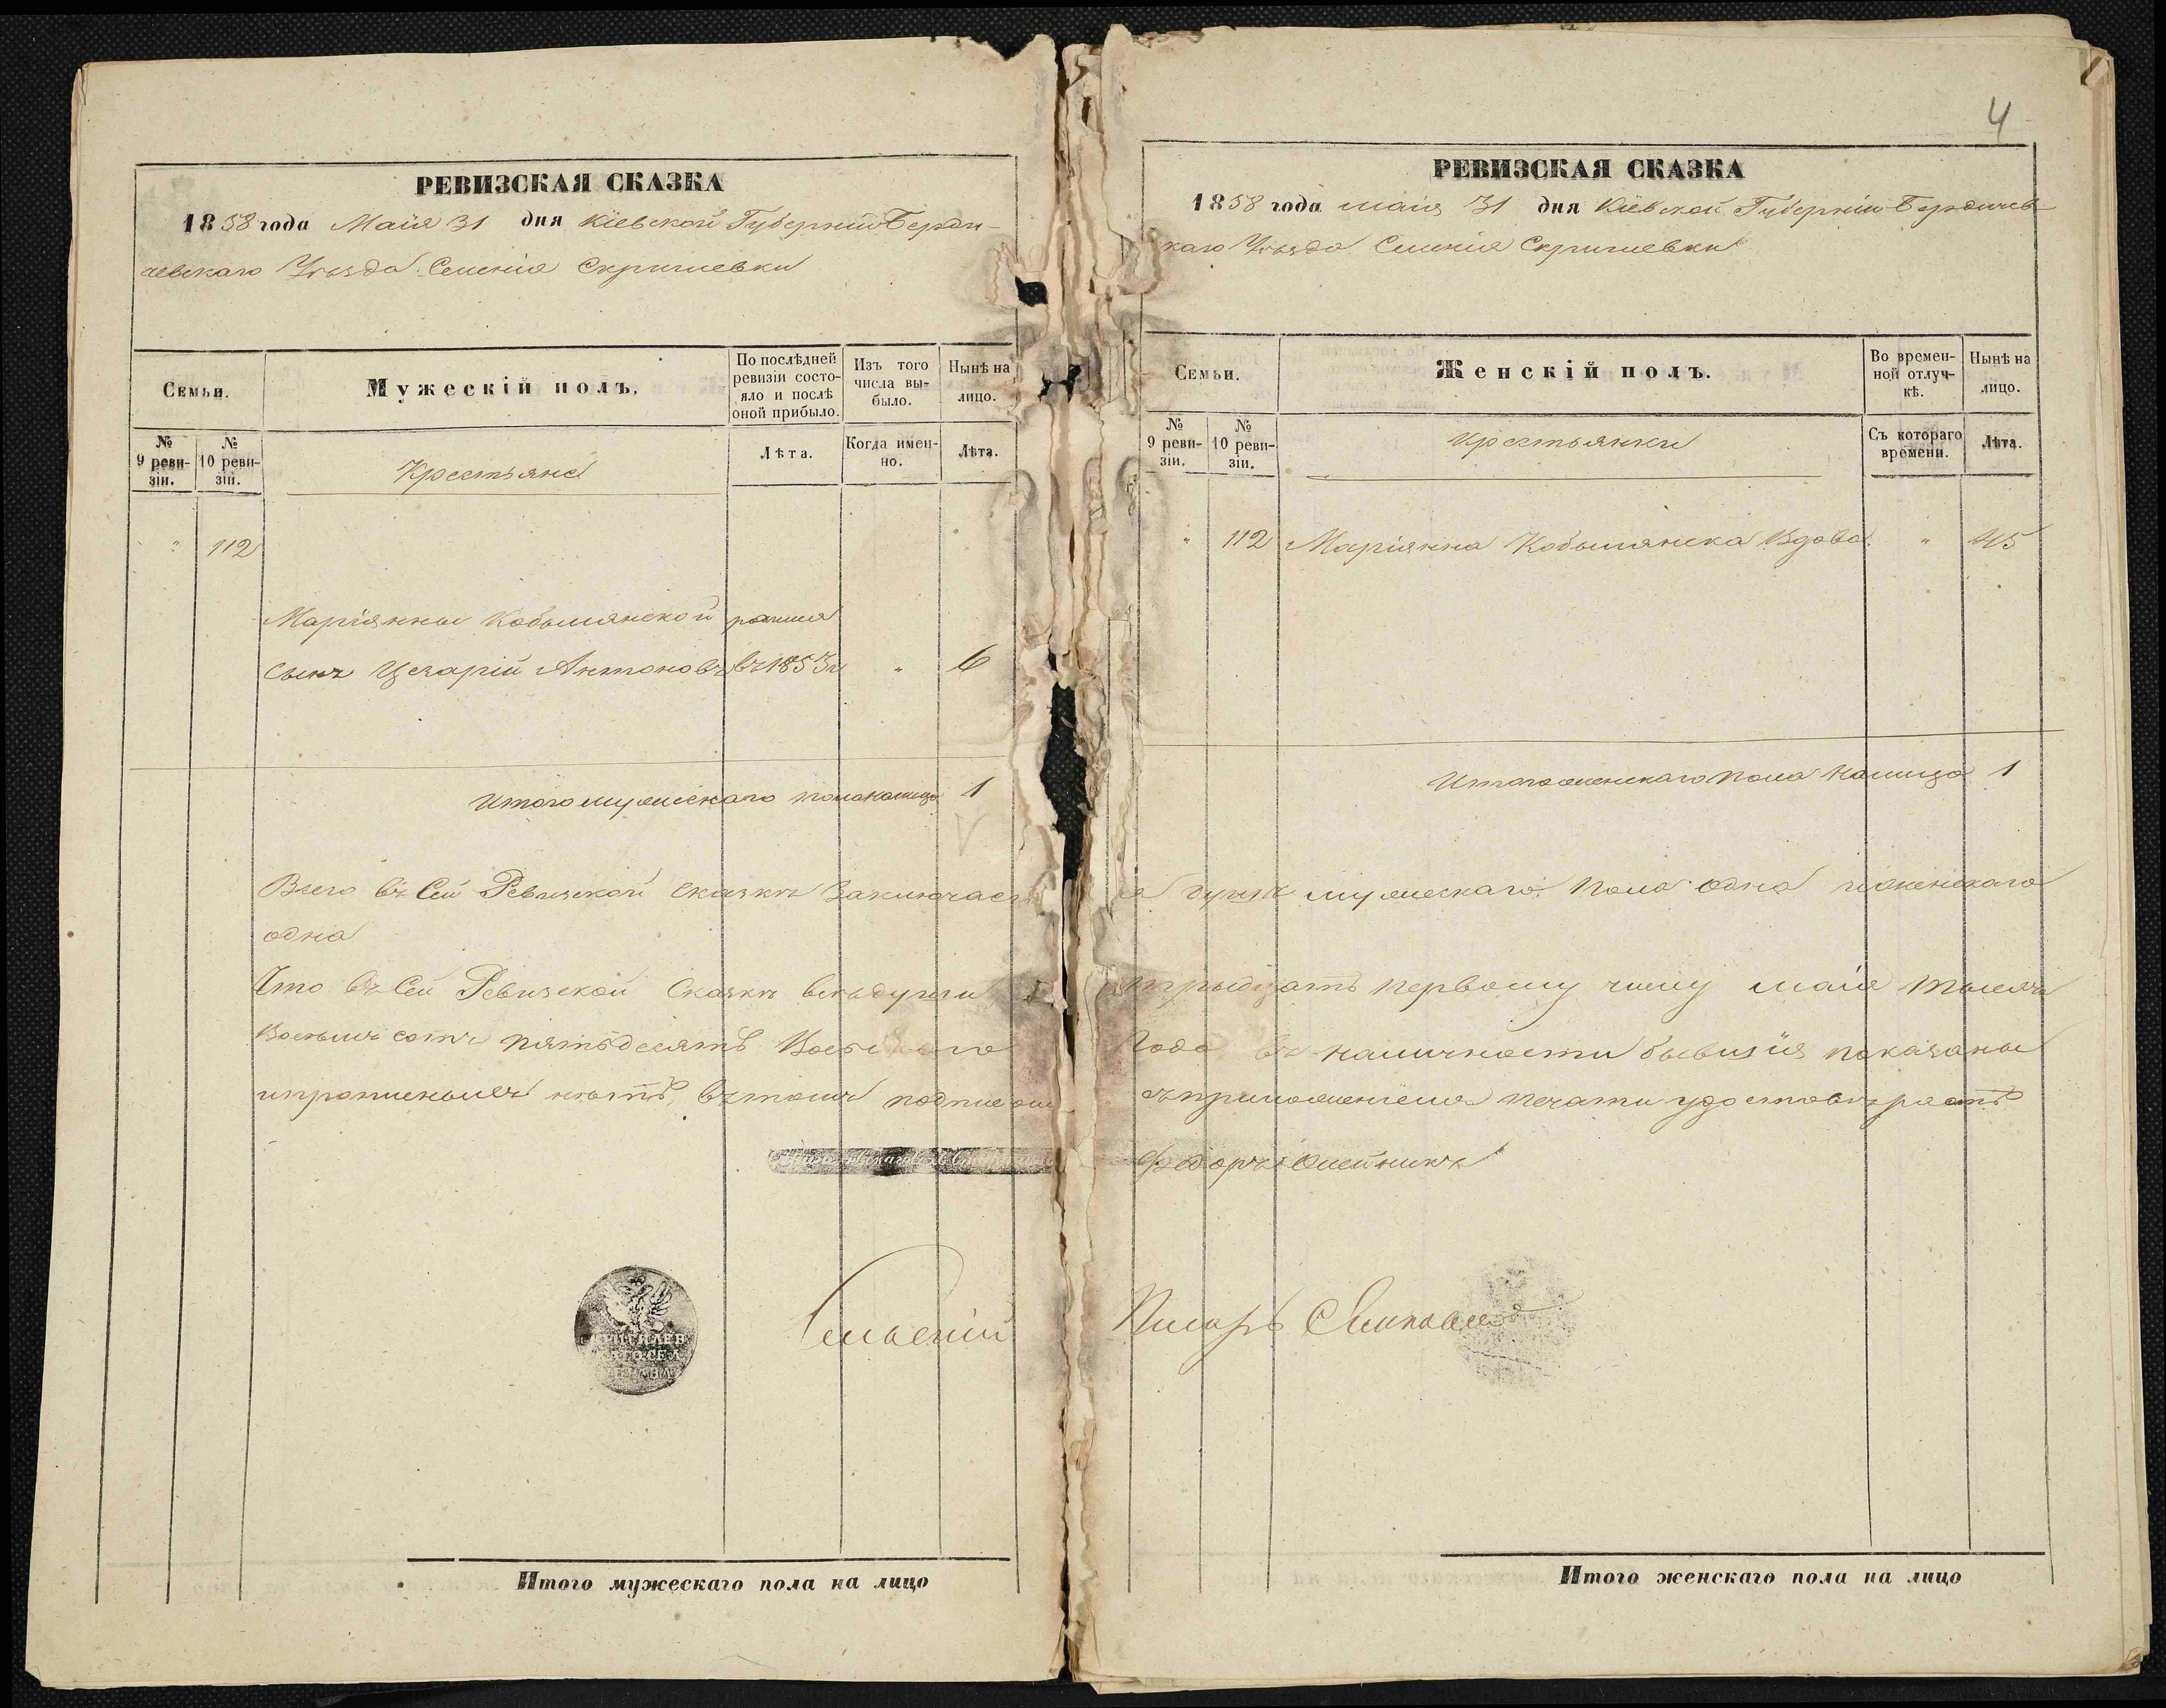 РЕВИЗСКАЯ СКАЗКА
1858 года Маія 31 дня Кіевской Губерніи Берди-
чевскаго Уѣзда Селенія Скригилевки
Семьи.
Мужескій полъ.
По послѣдней ревизіи состояло и послѣ оной прибыло.
Изъ того числа выбыло.
Нынѣ на лицо.
№ 9 ревизіи.
№ 10 ревизіи.
Крестьяне
Лѣта.
Когда именно.
Лѣта.
" 112
Маріянны Кобылянской родился
сынъ Цезарій Антоновъ въ 1853 г. " 6
Итого мужескаго пола налицо 1
Всего въ Сей Ревизской Сказкѣ Заключает
одна
Что въ Сей Ревизской Сказкѣ всѣ души
восемь сотъ пятьдесятъ
нѣтъ, въ томъ подписом
Сельскій
Итого мужескаго пола на лицо
4
РЕВИЗСКАЯ СКАЗКА
1858 года маія 31 дня Кіевской Губерніи Бердичев
каго Уѣзда Селенія Скригилевки
Семьи.
Женскій полъ.
Во временной отлучкѣ.
Нынѣ на лицо.
№ 9 ревизіи.
№ 10 ревизіи.
Крестьянки
Съ котораго времени.
Лѣта.
" 112 Маріянна Кобылянска Вдова. " 45
Итого женскаго пола налицо 1
я душъ мужескаго пола одна и женскаго
тридцать первому числу маія тысяча
Года въ наличности бывшія показаны
съ приложеніемъ печати удостовѣряетъ
Федоръ Олейникъ
Писарь
Итого женскаго пола на лицо